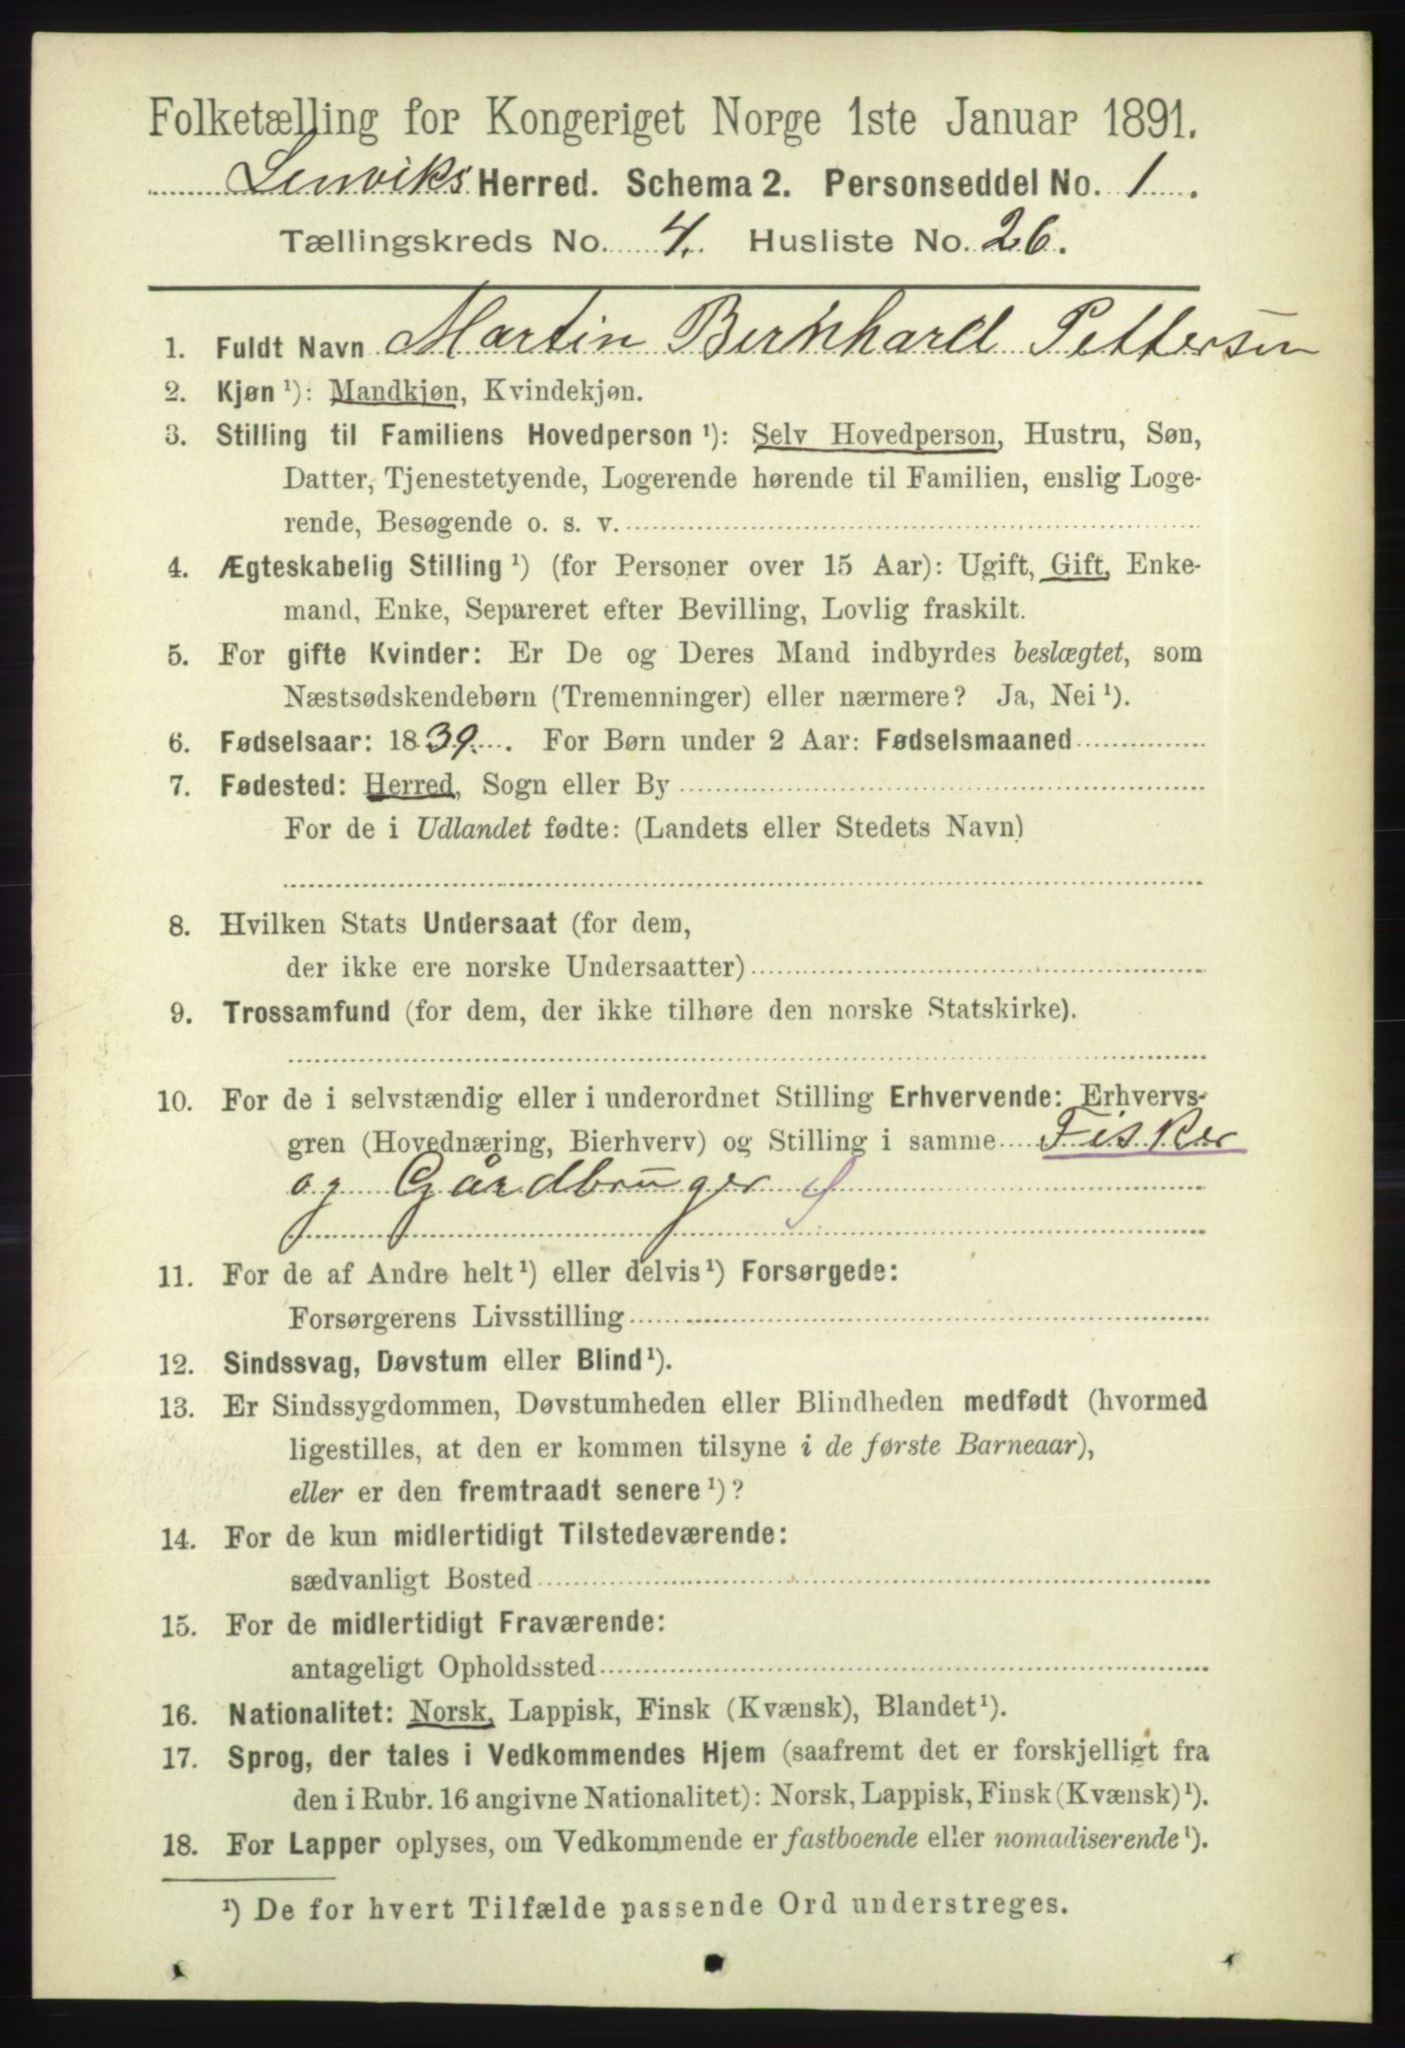 Folketælling for Kongeriget Norge 1ste Januar 1891.
Lenviks Herred. Schema 2. Personseddel No. 1.
Tællingskreds No. 4. Husliste No. 26.
1. Fuldt Navn Martin Bernhard Pettersen
2. Kjøn ¹): Mandkjøn, Kvindekjøn.
3. Stilling til Familiens Hovedperson ¹): Selv Hovedperson, Hustru, Søn,
Datter, Tjenestetyende, Logerende hørende til Familien, enslig Loge-
rende, Besøgende o. s. v.
4. Ægteskabelig Stilling ¹) (for Personer over 15 Aar): Ugift, Gift, Enke-
mand, Enke, Separeret efter Bevilling, Lovlig fraskilt.
5. For gifte Kvinder: Er De og Deres Mand indbyrdes beslægtet, som
Næstsødskendebørn (Tremenninger) eller nærmere? Ja, Nei ¹).
6. Fødselsaar: 1839. For Børn under 2 Aar: Fødselsmaaned
7. Fødested: Herred, Sogn eller By
For de i Udlandet fødte: (Landets eller Stedets Navn)
8. Hvilken Stats Undersaat (for dem,
der ikke ere norske Undersaatter)
9. Trossamfund (for dem, der ikke tilhøre den norske Statskirke).
10. For de i selvstændig eller i underordnet Stilling Erhvervende: Erhvervs-
gren (Hovednæring, Bierhverv) og Stilling i samme Fisker
og Gårdbruger
11. For de af Andre helt ¹) eller delvis ¹) Forsørgede:
Forsørgerens Livsstilling
12. Sindssvag, Døvstum eller Blind ¹).
13. Er Sindssygdommen, Døvstumheden eller Blindheden medfødt (hvormed
ligestilles, at den er kommen tilsyne i de første Barneaar),
eller er den fremtraadt senere ¹)?
14. For de kun midlertidigt Tilstedeværende:
sædvanligt Bosted
15. For de midlertidigt Fraværende:
antageligt Opholdssted
16. Nationalitet: Norsk, Lappisk, Finsk (Kvænsk), Blandet ¹).
17. Sprog, der tales i Vedkommendes Hjem (saafremt det er forskjelligt fra
den i Rubr. 16 angivne Nationalitet): Norsk, Lappisk, Finsk (Kvænsk) ¹).
18. For Lapper oplyses, om Vedkommende er fastboende eller nomadiserende ¹).
¹) De for hvert Tilfælde passende Ord understreges.